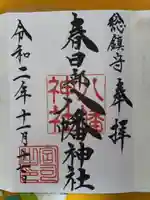 總鎮守 奉拝
春日部八幡神社
八幡神社
令和二年十一月十五日